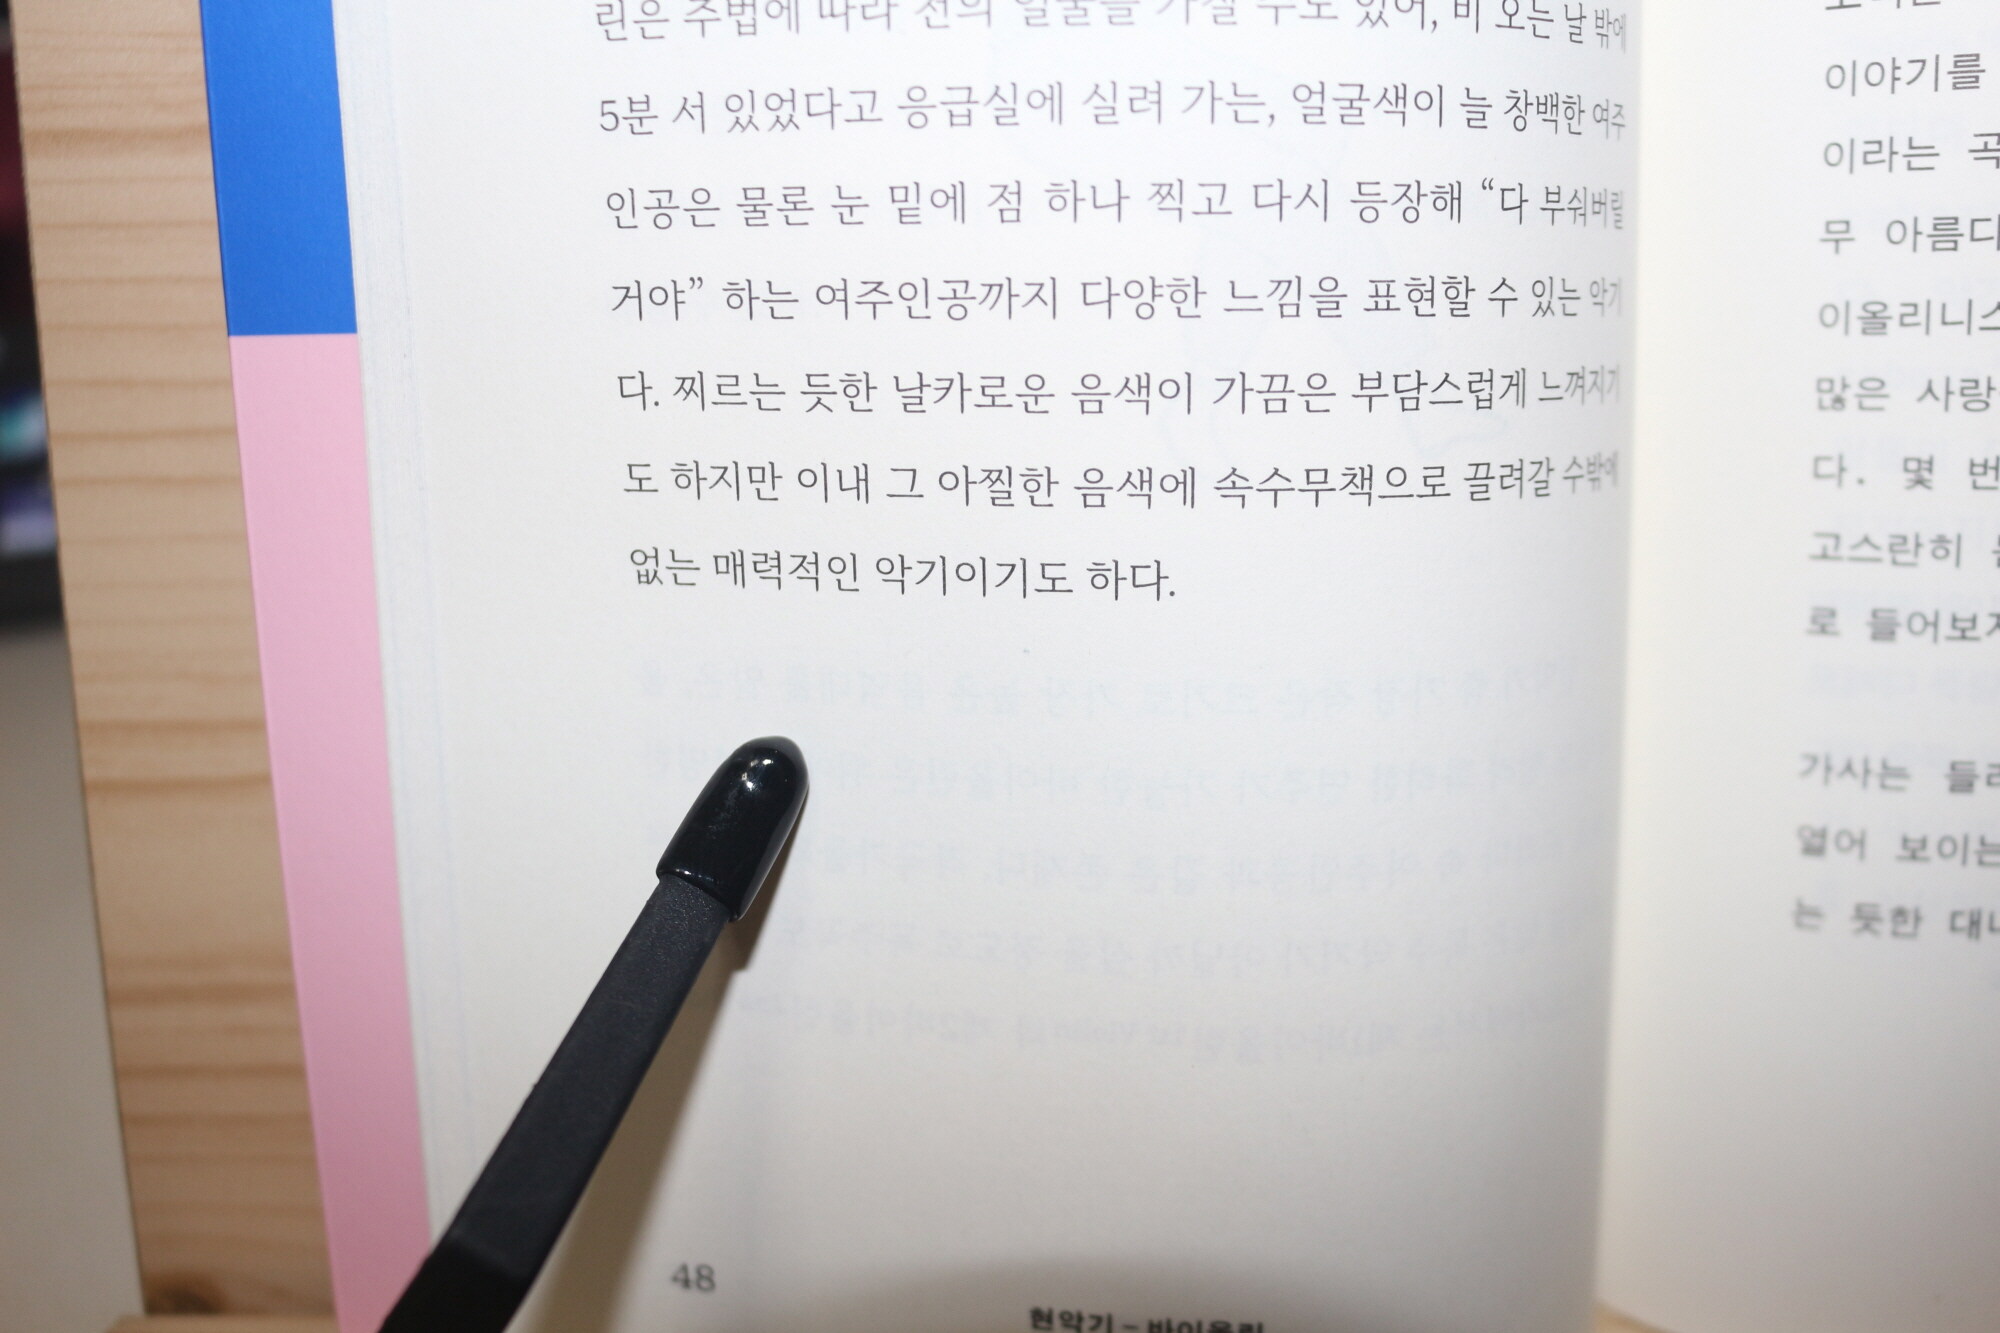 린은 주법에 따라 천의 얼굴을 가질 수도 있어, 비 오는 날 밖에
5분 서 있었다고 응급실에 실려 가는, 얼굴색이 늘 창백한 여주
인공은 물론 눈 밑에 점 하나 찍고 다시 등장해 “다 부숴버릴
거야” 하는 여주인공까지 다양한 느낌을 표현할 수 있는 악기
다. 찌르는 듯한 날카로운 음색이 가끔은 부담스럽게 느껴지기
도 하지만 이내 그 아찔한 음색에 속수무책으로 끌려갈 수밖에
없는 매력적인 악기이기도 하다.
48
현악기 – 바이올린
이야기를
이라는 곡
무 아름다
이올리니스
많은 사랑
다. 몇 번
고스란히
로 들어보자
가사는 들려
열어 보이는
는 듯한 대